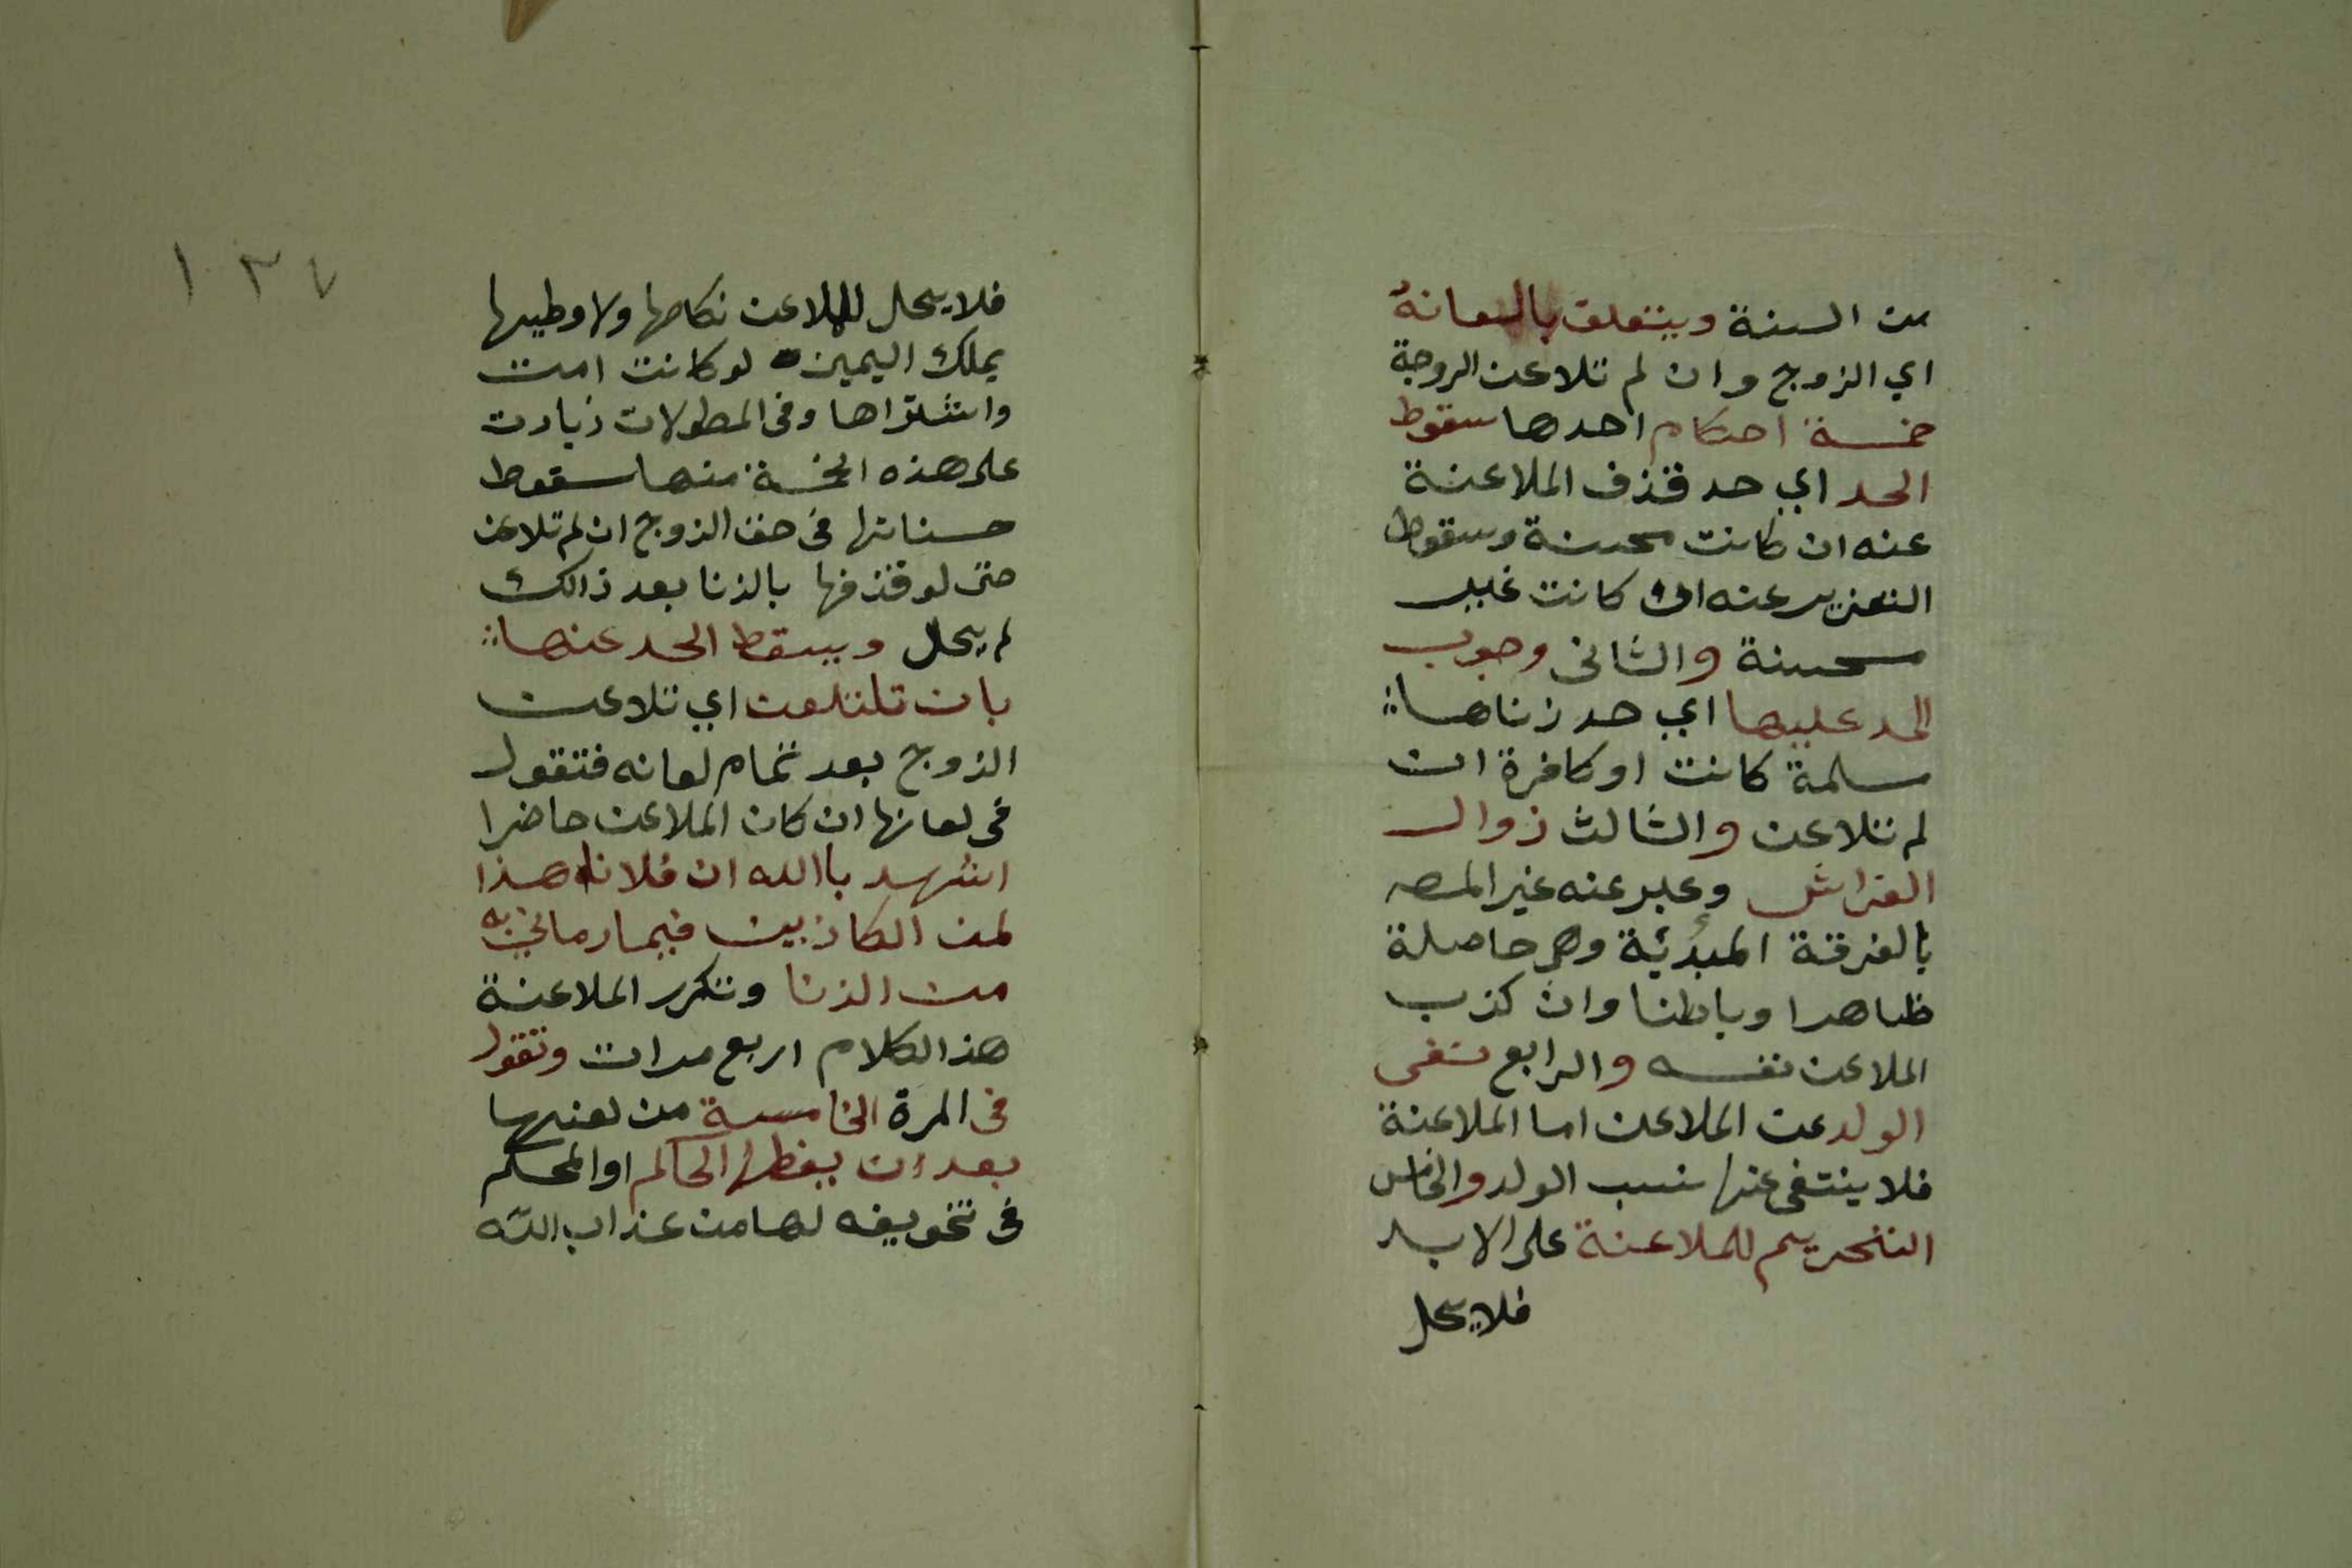 من السنة ويتعلق بالعانه
اي الزوج وان لم تلاعن الزوجة
خمسة احكام احدها سقوط
الحد اي حد قذف الملاعنة
عنه ان كانت محسنة وسقوط
التعزير عنه ان كانت غير
محسنة والثانى وجوب
الحد عليها اي حد زناها
مسلمة كانت او كافرة ان
لم تتلاعن والثالث زوال
الفراش وعبر عنه غير المص
بالفرقة المبدئة وهى حاصلة
ظاهرا وباطنا وان كذب
الملاعن نفسه والرابع نفى
الولد عن الملاعن اما الملاعنة
فلا ينتفى عنها نسب الولد والخامس
التحريم للملاعنة على الابد
فلا يحل
١٣٧
فلا يحل للملاعن نكاحها ولا وطيها
بملك اليمين لو كانت امت
واشتراها وفى المطولات زيادت
على هذه الخمسة منها سقوط
حسناتها فى حق الزوج ان لم تلاعن
حتى لو قذفها بالزنا بعد ذالك
لم يحل ويسقط الحد عنها
بان تلتعن اي تلاعن
الزوج بعد تمام لعانه فتقول
فى لعانها ان كان الملاعن حاضرا
اشهد باالله ان فلانا هذا
لمن الكاذبين فيما رمانى به
من الزنا وتكرر الملاعنة
هذا الكلام اربع مرات وتقول
فى المرة الخامسة من لعنها
بعد ان يعظها الحاكم او المحكم
فى تخويفه لها من عذاب الله